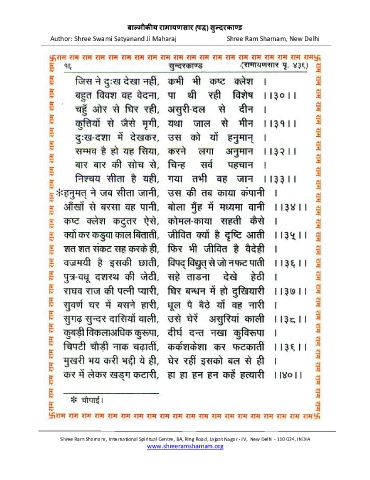 बाल्मीकीय रामायणसार (पद्य) सुन्दरकाण्ड
Author: Shree Swami Satyanand Ji Maharaj Shree Ram Sharnam, New Delhi
राम राम राम राम राम राम राम राम राम राम राम राम राम राम राम राम राम राम राम राम
१६ सुन्दरकाण्ड (रामायणसार पृ. ४३६)
जिस ने दुःख देखा नहीं, कभी भी कष्ट क्लेश ।
बहुत विवश वह वेदना, पा थी रही विशेष ।।३०।।
चहुँ ओर से घिर रही, असुरी-दल से दीन ।
कुत्तियों से जैसे मृगी, यथा जाल से मीन ।।३१।।
दुःख-दशा में देखकर, उस को यों हनुमान् ।
सम्भव है हो यह सिया, करने लगा अनुमान ।।३२।।
बार बार की सोच से, चिन्ह सर्व पहचान ।
निश्चय सीता है यही, गया तभी वह जान ।।३३।।
※हनुमत् ने जब सीता जानी, उस की तब काया कंपानी ।
आँखों से बरसा वह पानी, बोला मुँह में मध्यमा वानी ।।३४।।
कष्ट क्लेश कटुतर ऐसे, कोमल-काया सहती कैसे ।
क्यों कर कडुवा काल बिताती, जीवित क्यों है दृष्टि आती ।।३५।।
शत शत संकट सह करके ही, फिर भी जीवित है वैदेही ।
वज्रमयी है इसकी छाती, विपद् विद्युत् से जो न फट पाती ।।३६।।
पुत्र-वधू दशरथ की जेठी, सहे ताडना देखे हेठी ।
राघव राज की पत्नी प्यारी, घिर बन्धन में हो दुखियारी ।।३७।।
सुवर्ण घर में बसने हारी, धूल पै बैठे याँ वह नारी ।
सुगढ़ सुन्दर दासियों वाली, उसे घेरें असुरियां काली ।।३८।।
कुबड़ी विकलाअधिक कुरूपा, दीर्घ दन्त नखा कुविरूपा ।
चिपटी चौड़ी नाक चढ़ातीं, कर्कशकेशा कर फटकातीं ।।३९।।
मुखरी भय करी भद्दी ये ही, घेर रहीं इसको बल से ही ।
कर में लेकर खड्ग कटारी, हा हा हन हन कहें हत्यारी ।।४०।।
※ चौपाई।
राम राम राम राम राम राम राम राम राम राम राम राम राम राम राम राम राम राम राम राम
Shree Ram Sharnam, International Spiritual Centre, 8A, Ring Road, Lajpat Nagar - IV, New Delhi - 110 024, INDIA
www.shreeramsharnam.org